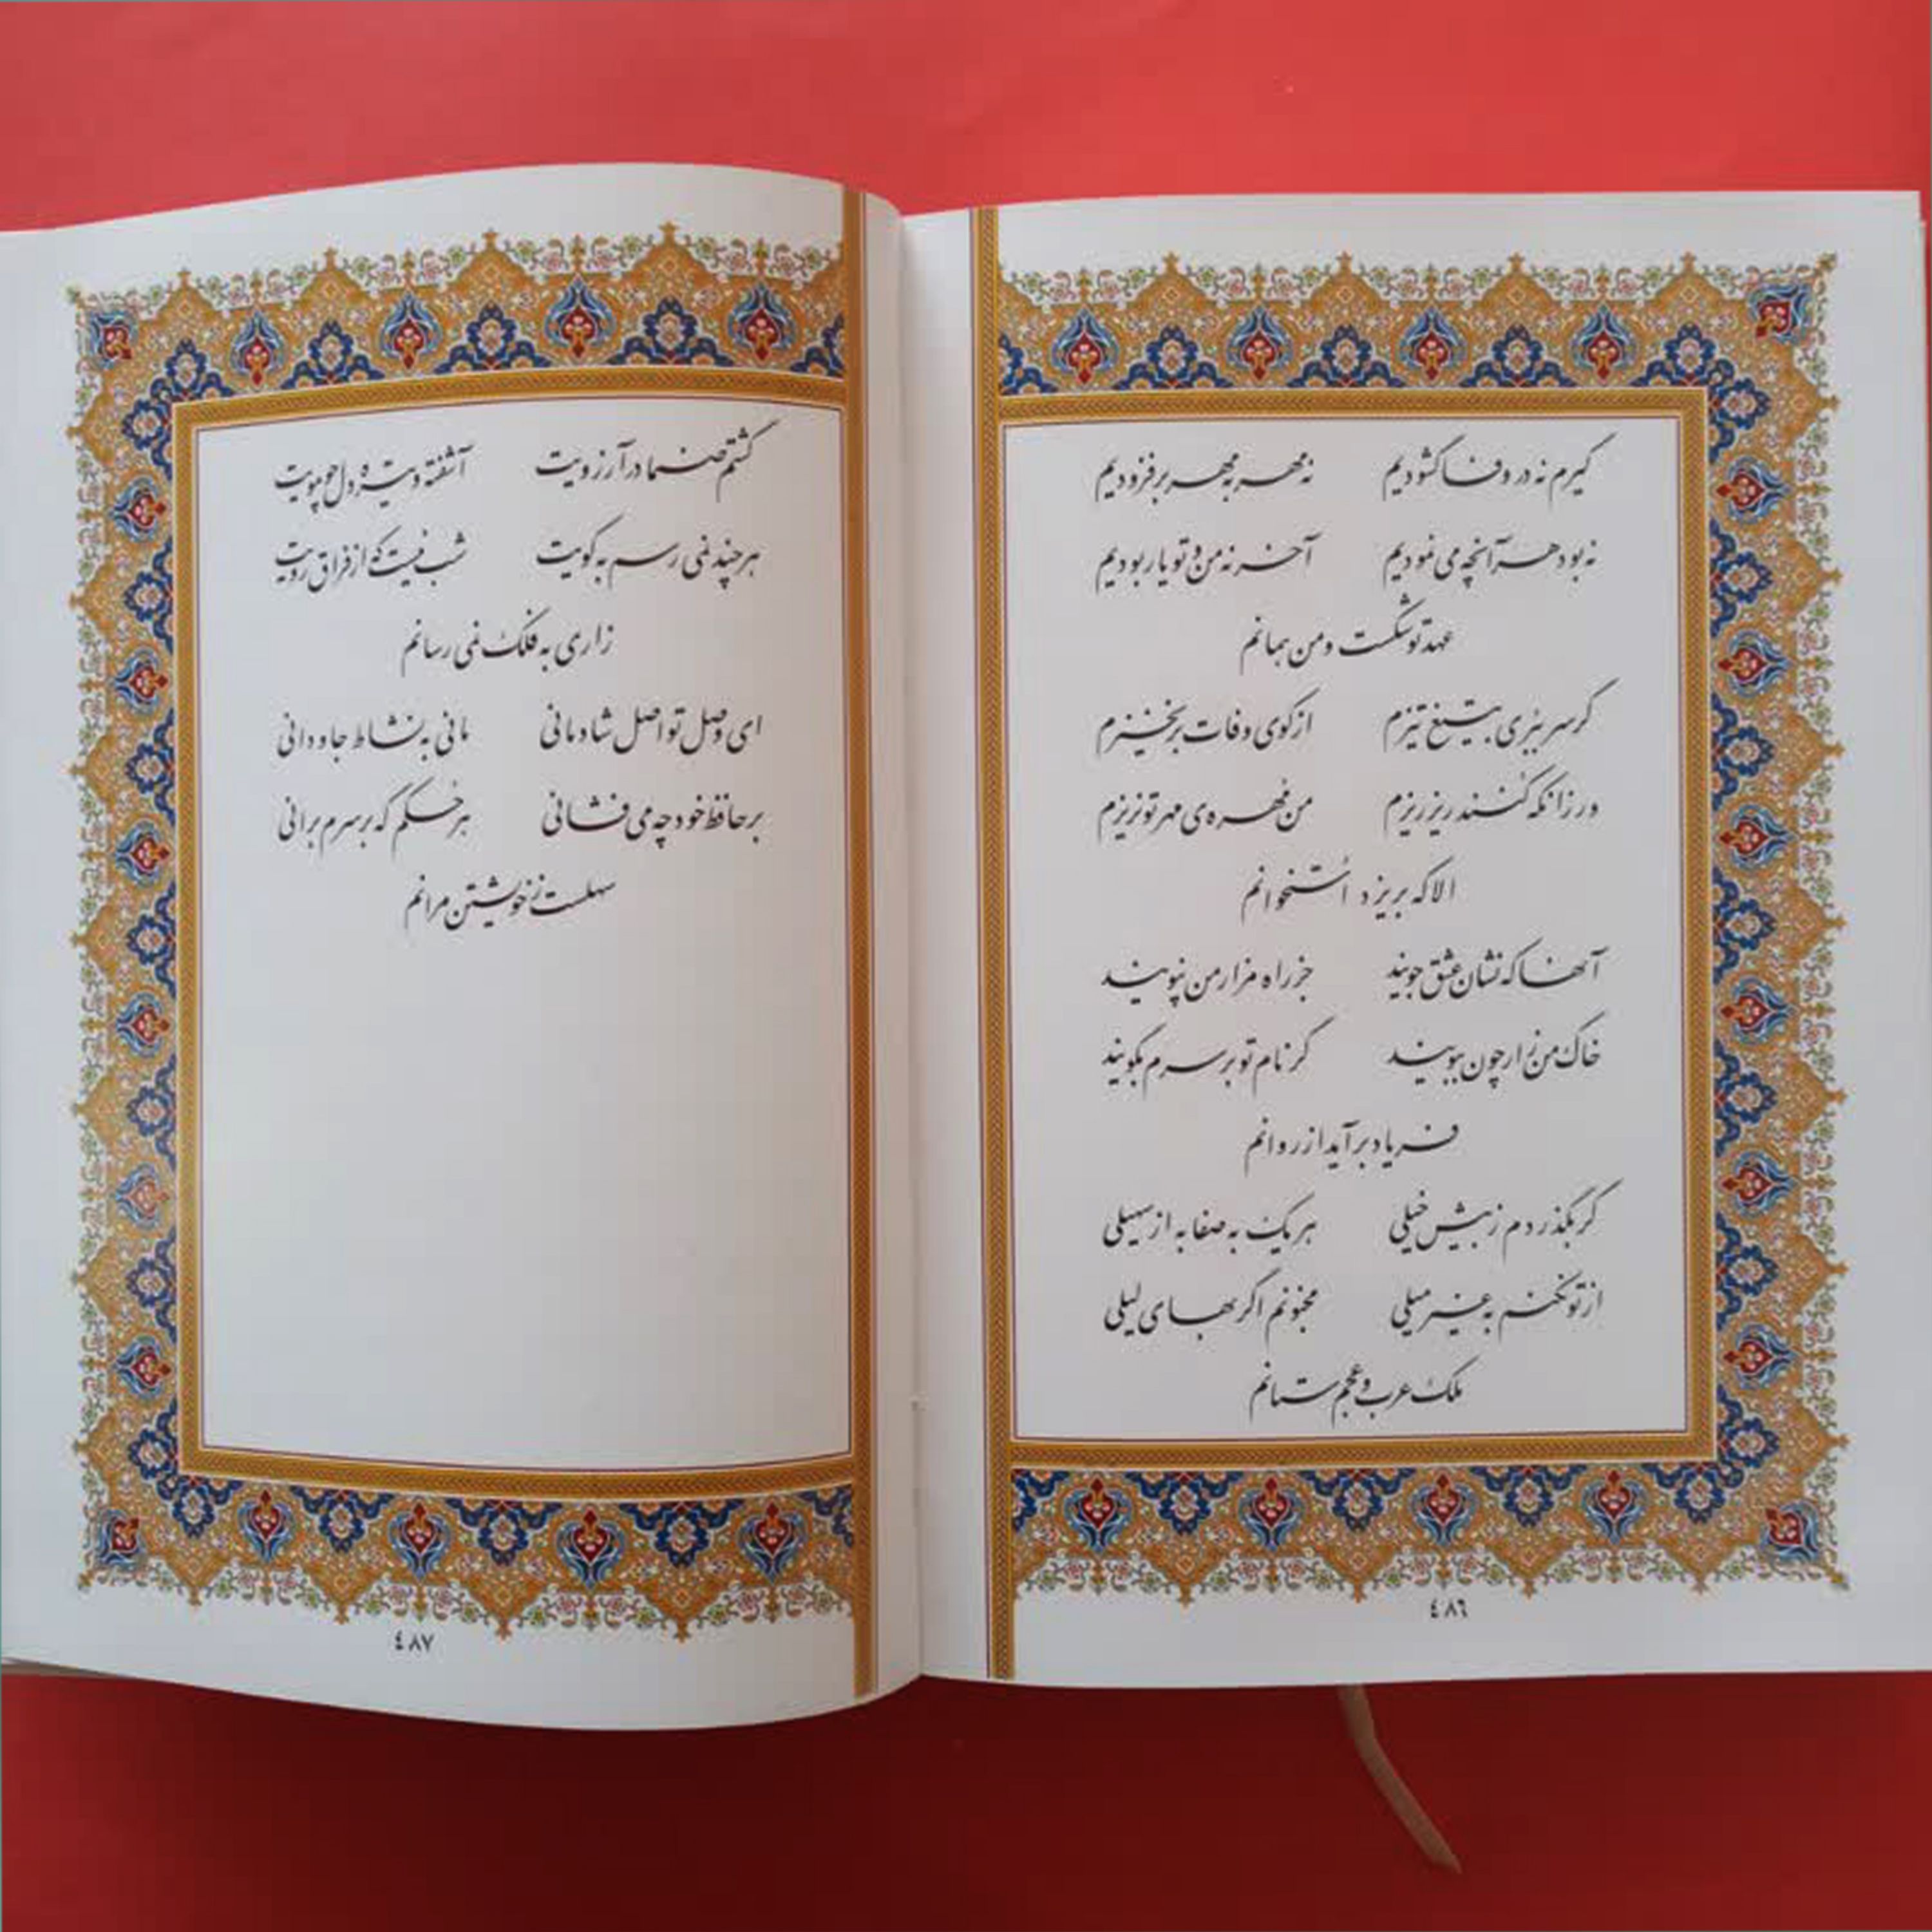 گیرم نه در وفا گشودیم نه مهر به مهر بر فزودیم
نه بود هر آنچه می نمودیم آخر نه من و تو یار بودیم
عهد تو شکست و من همانم
گر سر ببری به تیغ تیزم از کوی وفات بر نخیزم
ور زانکه کنند ریز ریزم من مهره‌ی مهر تو نریزم
الا که بریزد اُستخوانم
آنها که نشان عشق جویند جز راه مزار من نپویند
خاک من زار چون ببویند گر نام تو بر سرم بگویند
فریاد بر آید از روانم
گر بگذردم ز پیش خیلی هر یک به صفا به از سهیلی
از تو نکنم به غیر میلی مجنونم اگر بهای لیلی
ملک عرب و عجم ستانم
٤٨٦
گشتم صنما در آرزویت آشفته و تیره دل چو مویت
هر چند نمی رسم به کویت شب نیست که از فراق رویت
زاری به فلک نمی رسانم
ای وصل تو اصل شادمانی مانی به نشاط جاودانی
بر حافظ خود چه می فشانی هر حکم که بر سرم برانی
سهلست ز خویشتن مرانم
٤٨٧